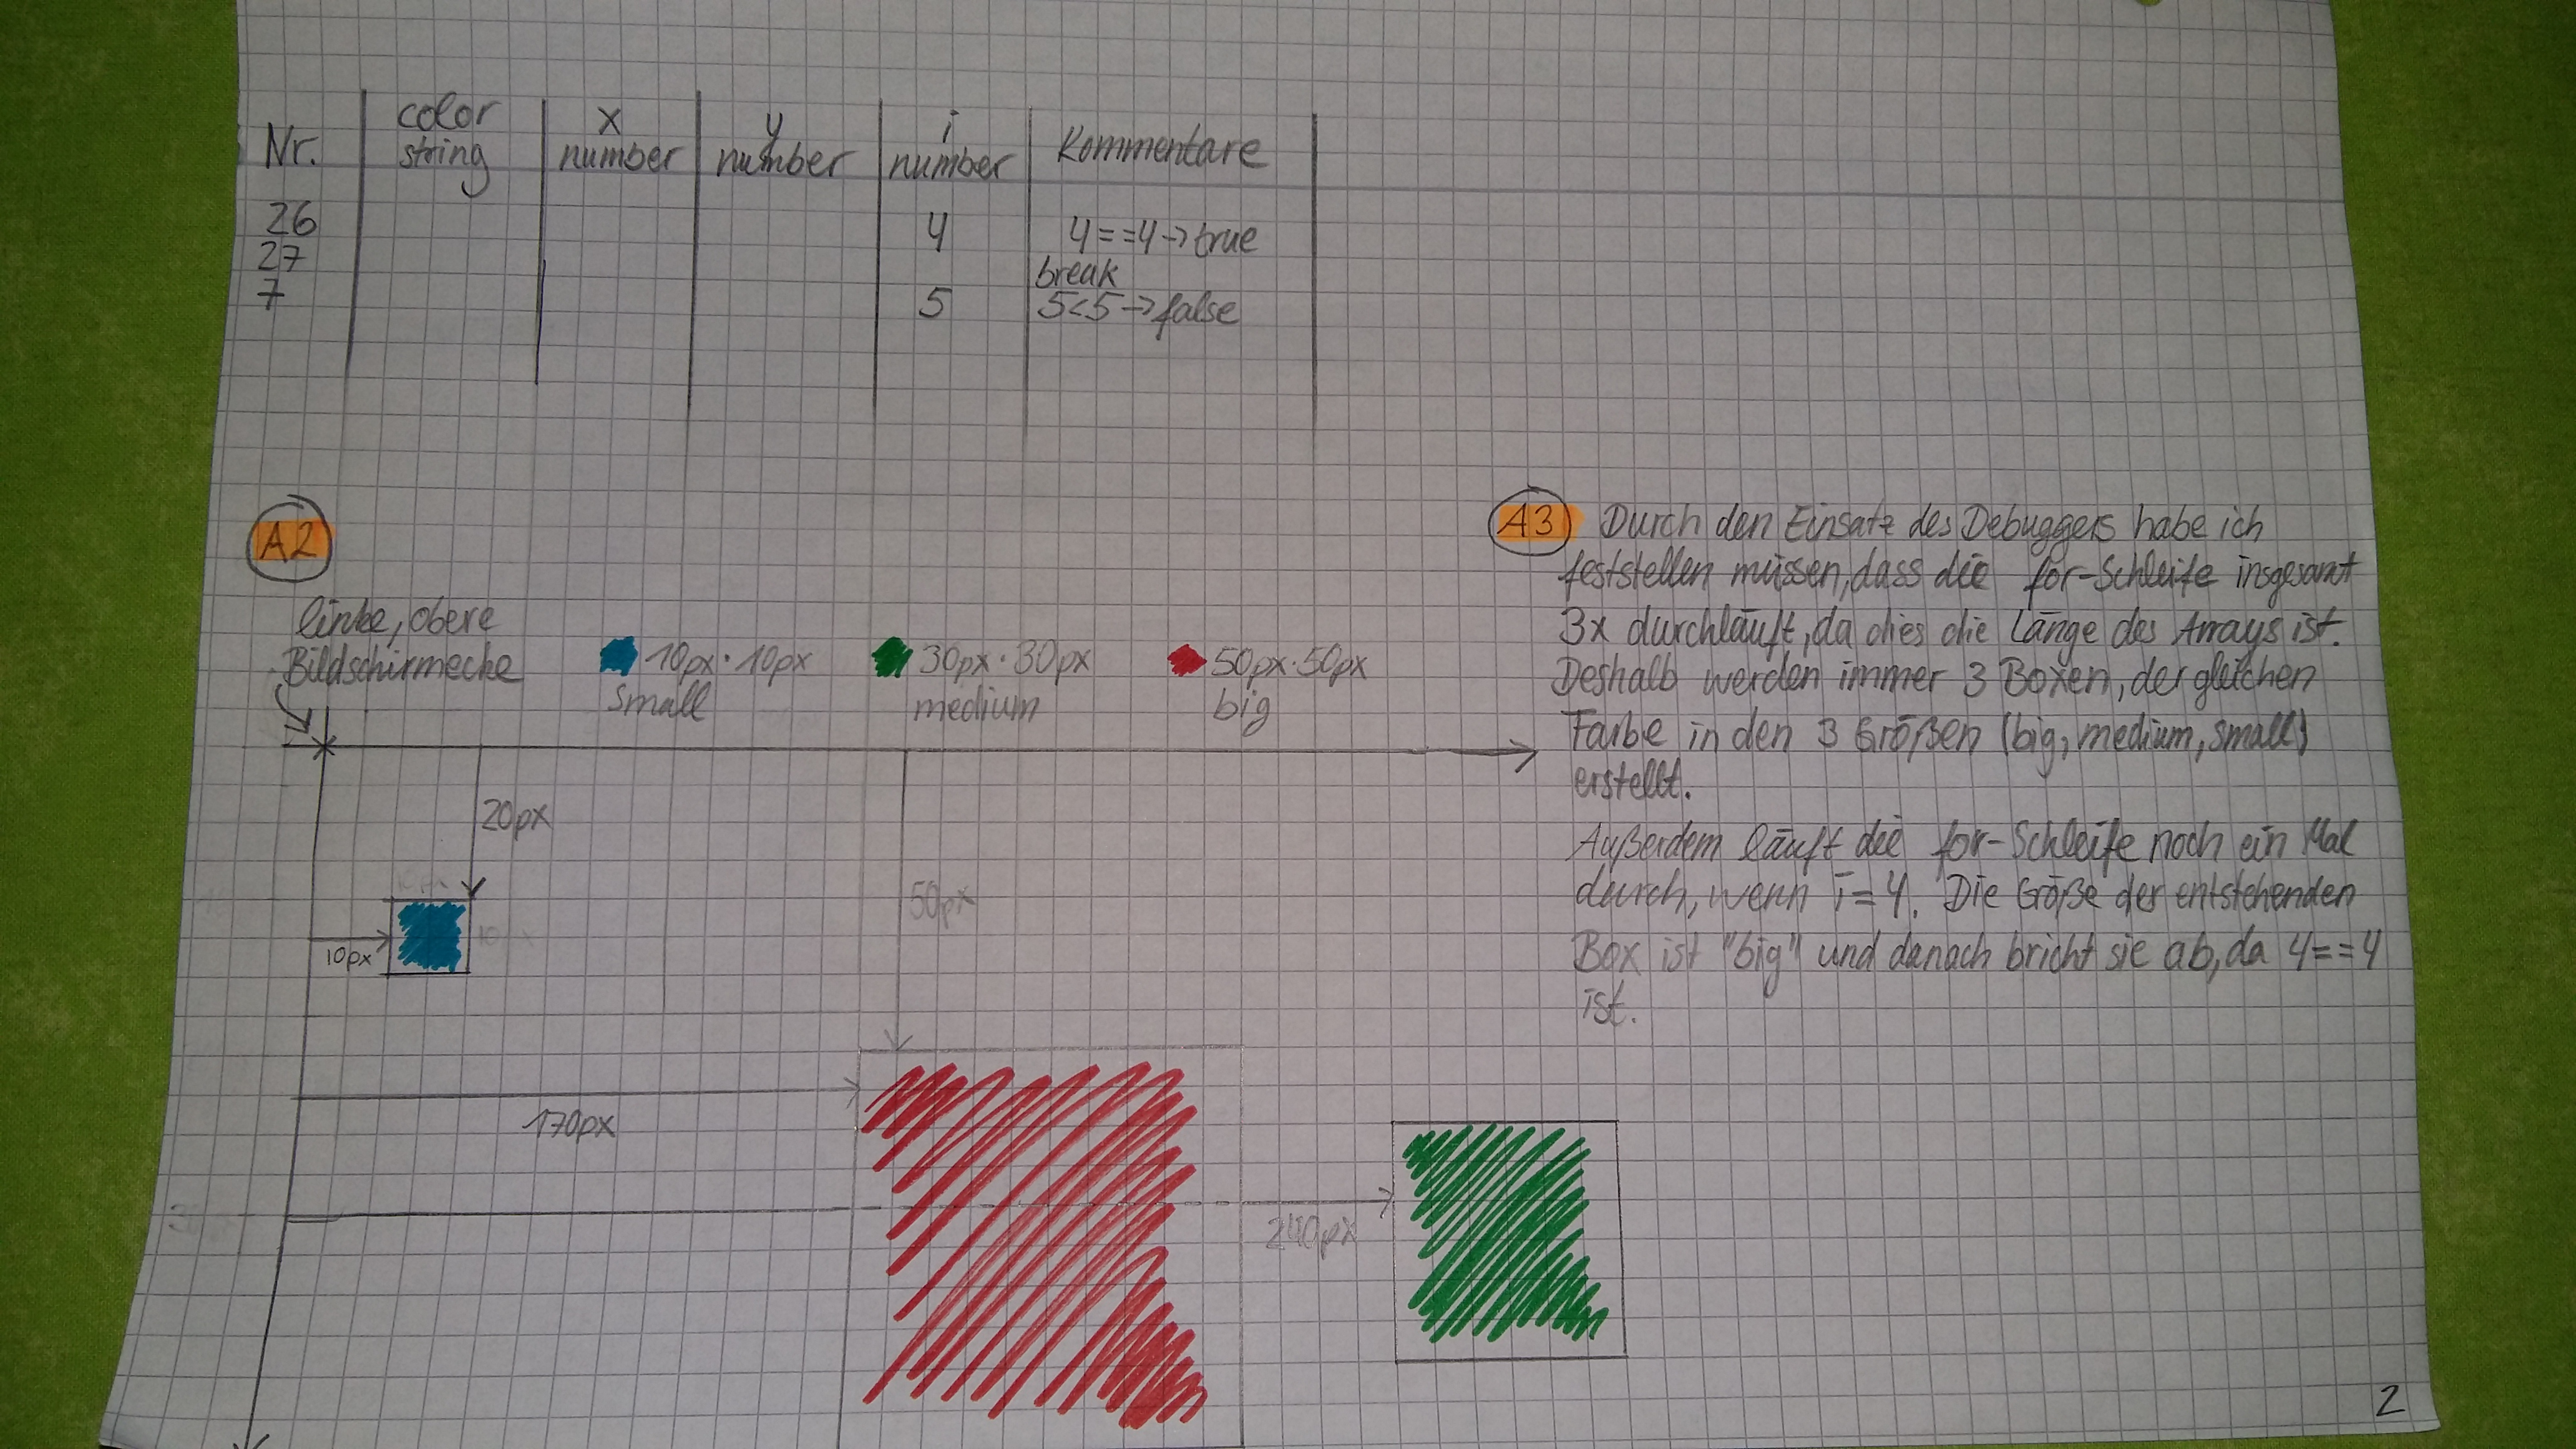 Nr. color x y i Kommentare
string number number number
26 4 4==4→true
27 break
7 5 5<5→false
A2
linke, obere
Bildschirmecke
10px·10px
small
30px·30px
medium
50px·50px
big
20px
10px
50px
170px
240px
A3 Durch den Einsatz des Debuggers habe ich
feststellen müssen, dass die for-Schleife insgesamt
3x durchläuft, da dies die Länge des Arrays ist.
Deshalb werden immer 3 Boxen, der gleichen
Farbe in den 3 Größen (big, medium, small)
erstellt.
Außerdem läuft die for-Schleife noch ein Mal
durch, wenn i=4. Die Größe der entstehenden
Box ist "big" und danach bricht sie ab, da 4==4
ist.
2